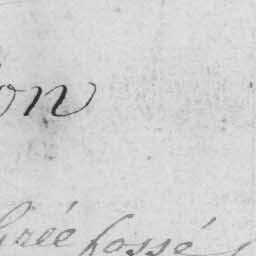 on
rée fossé